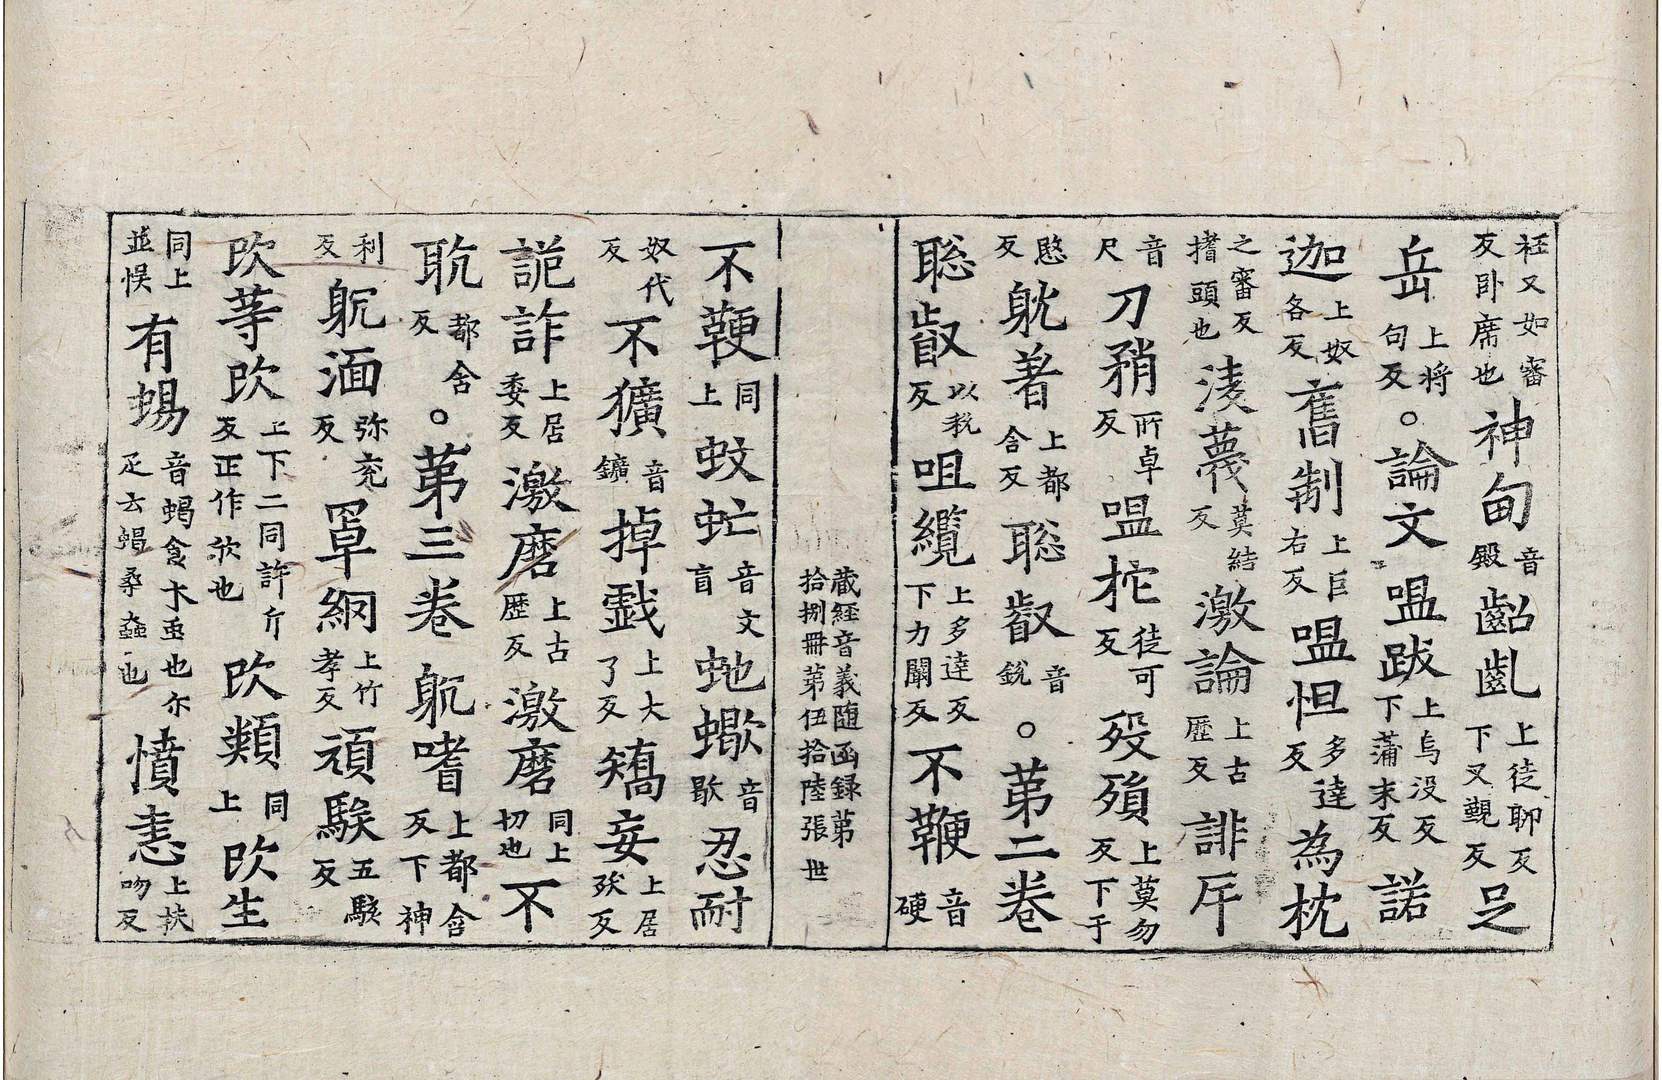 衽又如審反卧席也神甸音殿齠齔上徒聊反下叉覲反足
岳上将句反。論文嗢跋上烏没反下蒲末反諾
迦上奴各反舊制上巨右反嗢怛多達反為枕
之審反揩頭也淩蔑莫結反激論上古歷反誹斥
音尺刀矟所卓反嗢柁徒可反歿殞上莫勿反下于
愍反躭著上都含反聡叡音銳。苐二卷
聡叡以税反咀纜上多達反下力闞反不鞕音硬
藏經音義随函録第
拾捌冊苐伍拾陸張 世
不鞕同上蚊虻音文音盲虵蠍音歇忍耐
奴代反不獷音鑛掉戲上大了反矯妄上居㳄反
詭詐上居委反激磨上古歷反激磨同上切也不
躭都含反。苐三卷躭嗜上都含反下神
利反躭湎弥兖反罩網上竹孝反頑騃五駭反
欨等欨上下二同許斤反正作欣也欨類同上欨生
同上並悮有蝎音蝎食木䖝也尓疋云蝎桑蠧也憤恚上扶吻反